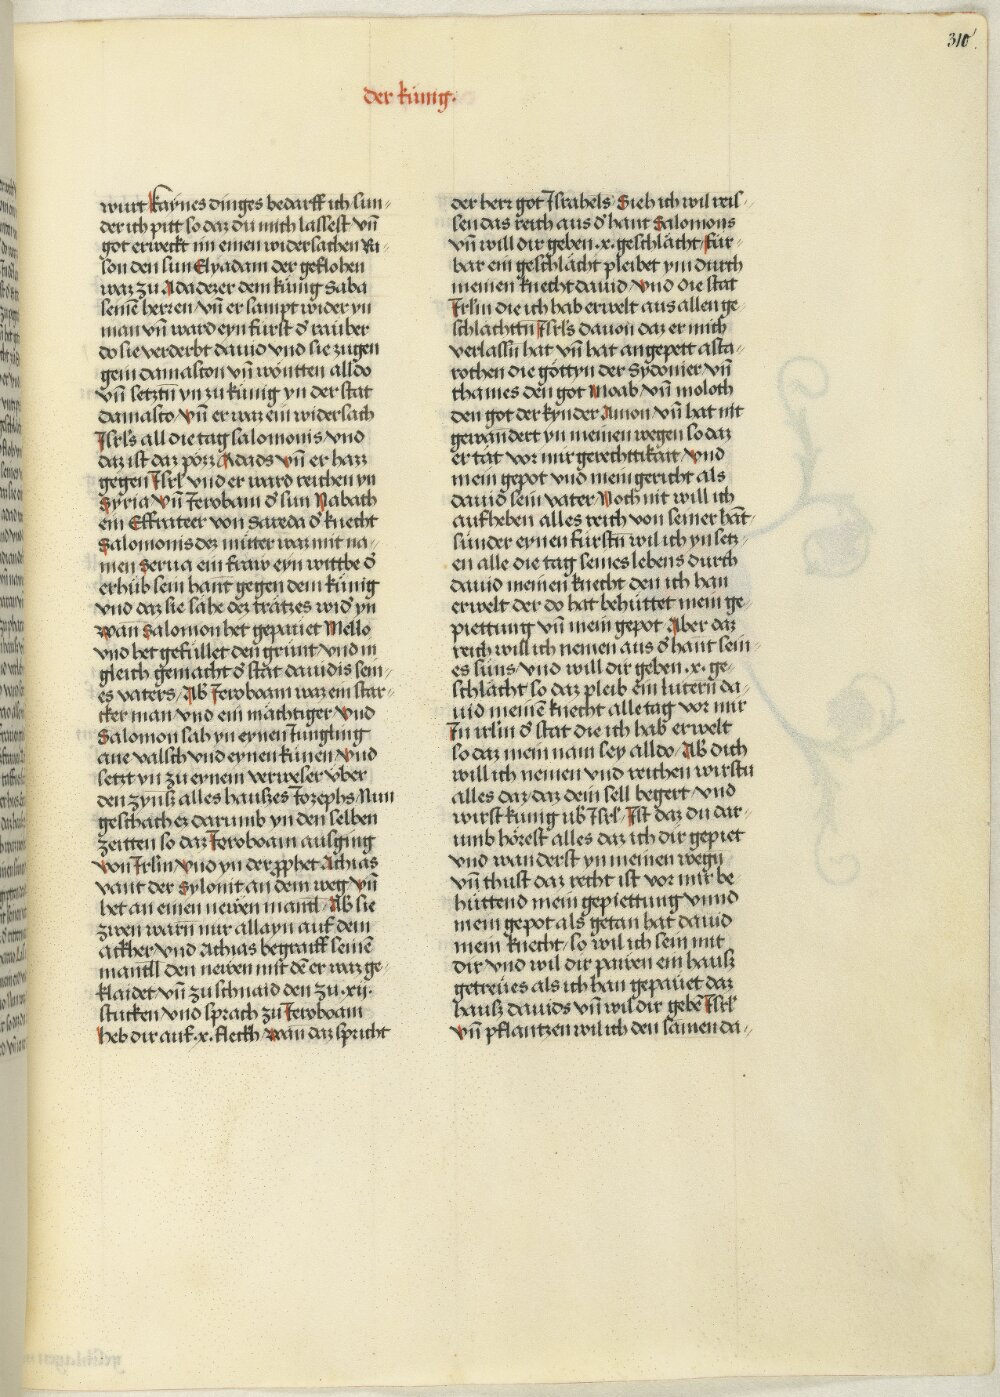 310
der künig.
wurt kaynes dinges bedarff ich sun-
der ich pitt so daz du mich lassest vn̄
got erweckt im einen widersachen Ra-
son den sun Elyadam der geflohen
waz zu Adadezer dem künig Saba
seinē herren vn̄ er sampt wider yn
man vn̄ ward eyn fürst d' rauber
do sie verderbt dauid vnd sie zugen
gem damaston vn̄ wontten alldo
vn̄ setztn̄ yn zu künig yn der stat
damasto vn̄ er waz ein widersach
Isrls all die tag salomonis vnd
daz ist daz pozz Adads vn̄ er hazz
gegen Isrl vnd er ward reichen yn
Syria vn̄ Jerobam d' sun Nabach
ein Effrateer von Sareda d' knecht
Salomonis dez mutter waz mit na-
men Serua ein fraw eyn wittbe d'
erhub sein hant gegen dem künig
vnd daz sie sahe dez tratzes wid' yn
wan Salomon het gepauet Mello
vnd het gefullet den grunt vnd in
gleich gemacht d' stat dauidis sein-
es vaters Ab Jeroboam waz ein star-
cker man vnd ein mächtiger vnd
Salomon sah yn eynen Jungling
ane valsch vnd eynen künen vnd
setzt yn zu eynem verweser vber
den zynsz alles hauszes Jozephs Nun
geschach ez darumb yn den selben
zeitten so daz Jeroboam ausging
von Jrlin vnd yn der prophet Achias
vant der Sylonit an dem weg vn̄
het an einen newen mantl Ab sie
zwen warn nur allayn auf dem
ackher vnd Achias begraiff seinē
mantll den newen mit dē er waz ge-
klaidet vn̄ zu schnaid den zu .xij.
stucken vnd sprach zu Jeroboam
heb dir auf .x. fleckh wan daz spricht
der herr got Israhels Sieh ich wil reis-
sen das reich aus d' hant Salomons
vn̄ will dir geben .x. geschlächt für-
bar ein geschlächt pleibet ym durch
meinen knecht dauid vnd die stat
Jrlin die ich hab erwelt aus allen ge-
schlächttn Isrls dauon daz er mich
verlassn hat vn̄ hat angepett asta-
rothen die göttyn der Sydonier vn̄
thames den got Moab vn̄ moloch
den got der kynder Amon vn̄ hat nit
gewandert yn meinen wegen so daz
er tät vor mir gerechttikait vnd
mein gepot vnd mein gericht als
dauid sein vater Noch nit will ich
aufheben alles reich von seiner hāt-
sunder eynen fürstn̄ wil ich yn setz-
en alle die tag seines lebens durch
dauid meinen knecht den ich han
erwelt der do hat behüttet mein ge-
piettung vn̄ mein gepot Aber daz
reich will ich nemen aus d' hant sein-
es suns vnd will dir geben .x. ge-
schlächt so daz pleib ein lutern̄ da-
uid meinē knecht alle tag vor mir
In irlin d' stat die ich hab erwelt
so daz mein nam sey alldo Ab dich
will ich nemen vnd reichen wirstu
alles daz daz dein sell begert vnd
wirst kunig ub' Isrl' Ist daz du dar-
umb hörest alles daz ich dir gepiet
vnd wanderst yn meinen wegn̄
vn̄ thust daz recht ist vor mir be
hüttend mein gepiettung vnnd
mein gepot als getan hat dauid
mein knecht so wil ich sein mit
dir vnd wil dir pawen ein hausz
getreües als ich han gepauet daz
hausz dauids vn̄ wil dir gebē Isrl'
vn̄ pflantzen wil ich den samen da-